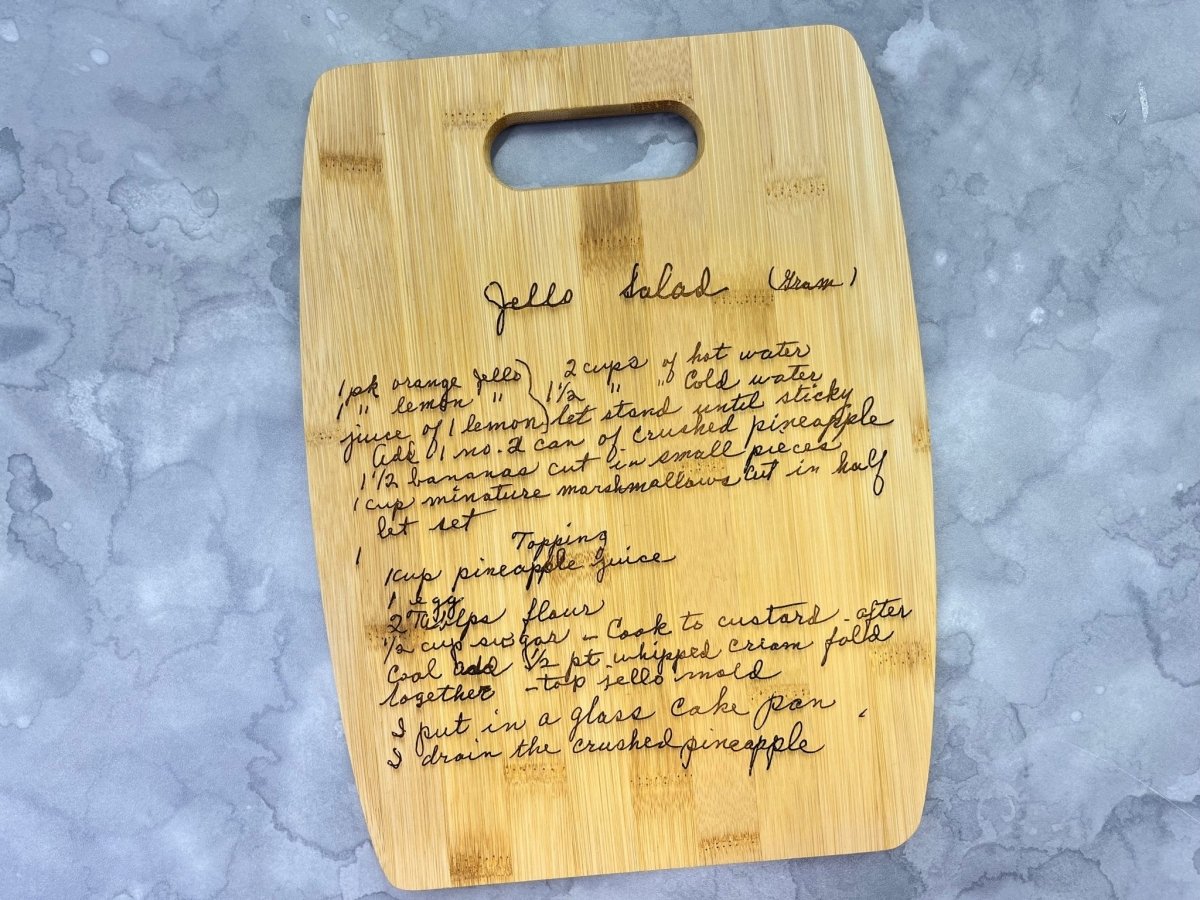 Jello Salad (Gram)
1 pk orange Jello } 2 cups of hot water
1 " lemon " 1 1/2 " " Cold water
juice of 1 lemon let stand until sticky
Add 1 no. 2 can of crushed pineapple
1 1/2 bananas cut in small pieces
1 cup minature marshmallows cut in half
let set
1
Topping
1 cup pineapple juice
1 egg
2 flour
1/2 cup sugar - Cook to custard - after
Cool add 1/2 pt whipped cream fold
together - top jello mold
I put in a glass cake pan
I drain the crushed pineapple